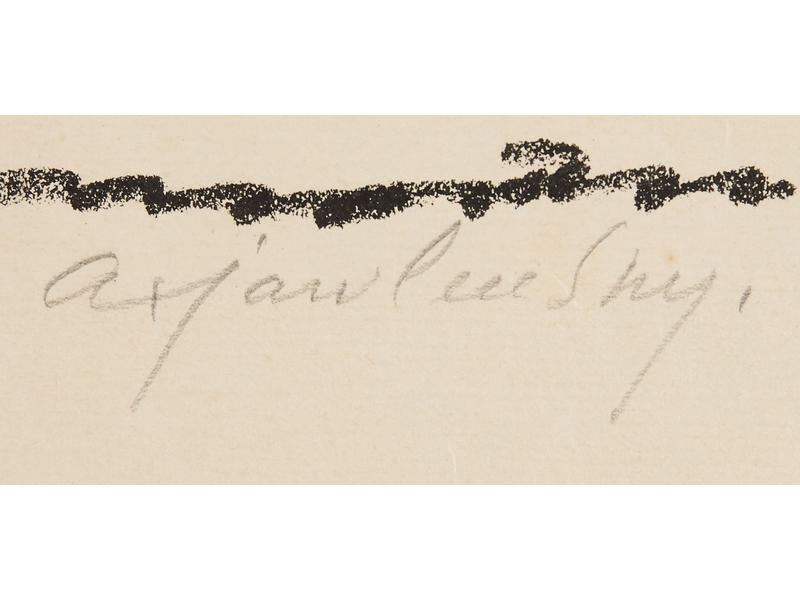 a. jawlensky.